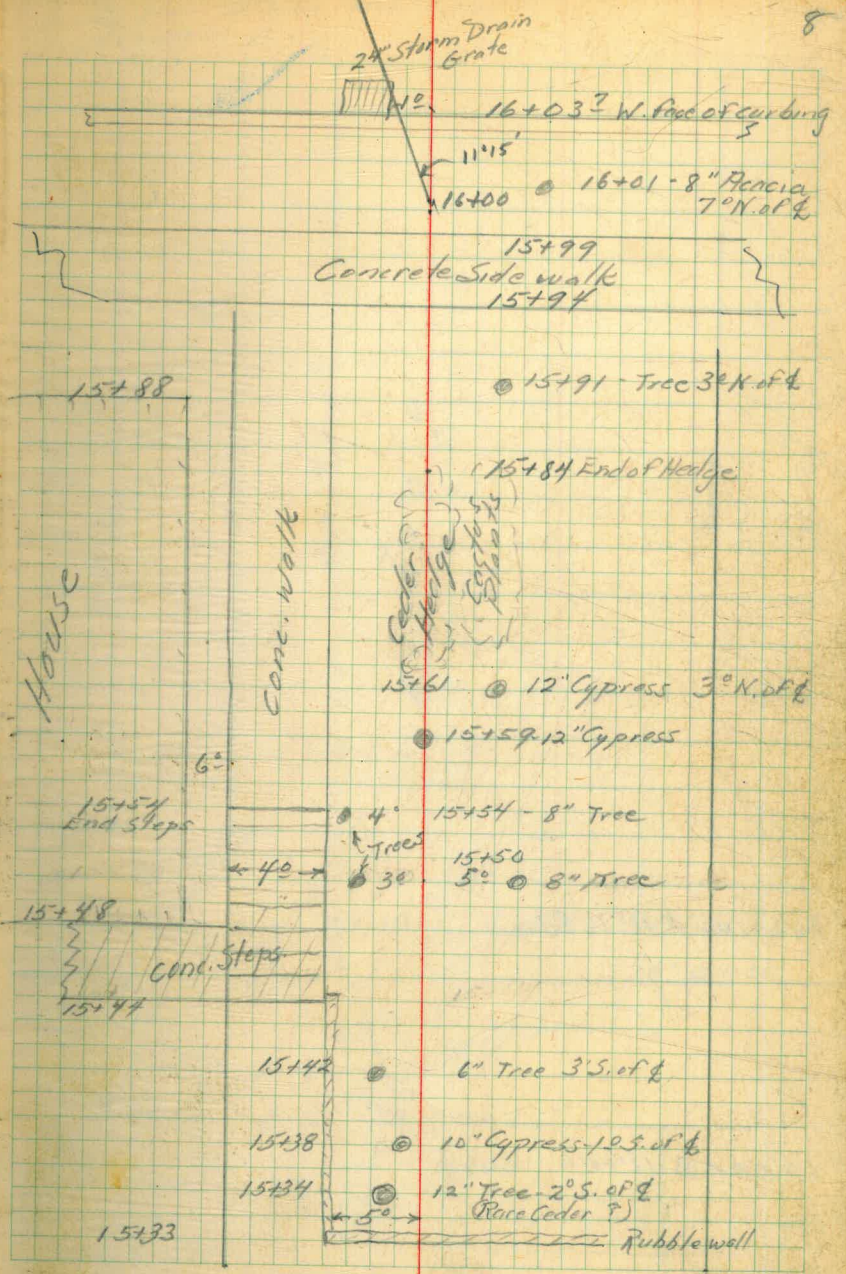 8
24" Storm Drain
Grate
1º
16+03⁷ W. face of curbing
11°15'
16+00
16+01 - 8" Acacia
7º N. of ℄
15+99
Concrete Side walk
15+94
15+88
15+91 - Tree 3º N. of ℄
15+84 End of Hedge
House
Conc. Walk
Ceder
Hedge
Cactus
Plants
15+61
12" Cypress 3º N. of ℄
15+59-12" Cypress
6º
15+54
End Steps
4º
15+54 - 8" Tree
Trees
15+50
4º
3º
5º
8" Tree
15+48
Conc. Steps
15+44
15+42
6" Tree 3' S. of ℄
15+38
10" Cypress-1º S. of ℄
15+34
12" Tree-2º S. of ℄
(Race Ceder ?)
5º
15+33
Rubble wall